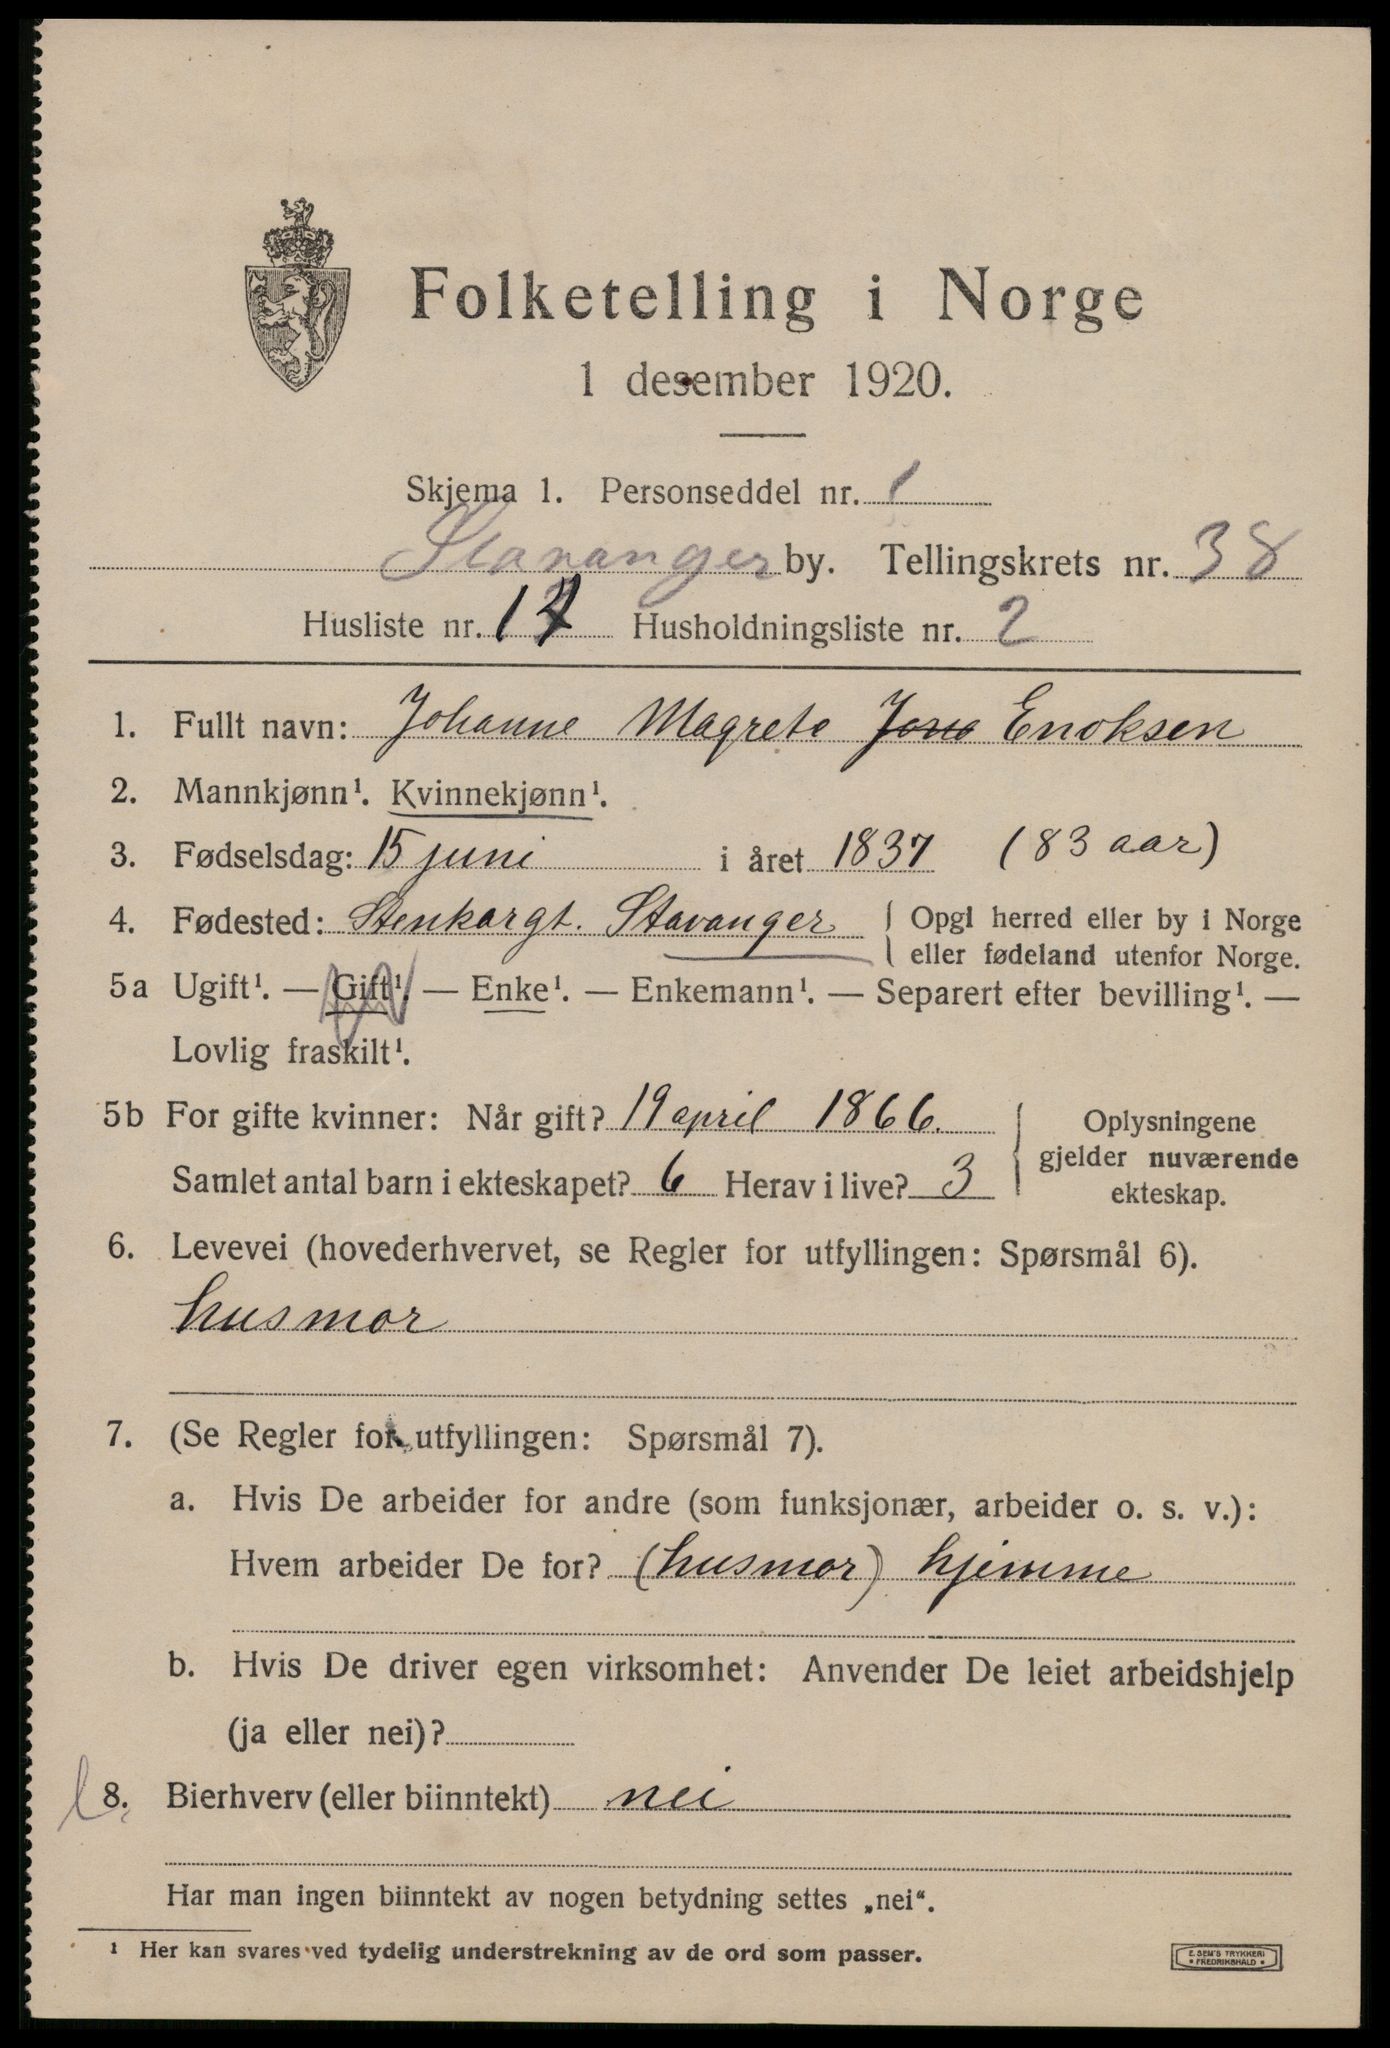 Folketelling i Norge
1 desember 1920.
Skjema 1. Personseddel nr. 1
Stavanger by. Tellingskrets nr. 38
Husliste nr. 17 Husholdningsliste nr. 2
1. Fullt navn: Johanne Magrete Enoksen
2. Mannkjønn¹. Kvinnekjønn¹.
3. Fødselsdag: 15 juni i året 1837 (83 aar)
4. Fødested: Stenkargt. Stavanger { Opgi herred eller by i Norge
eller fødeland utenfor Norge.
5a Ugift¹. — Gift¹. — Enke¹. — Enkemann¹. — Separert efter bevilling¹. —
Lovlig fraskilt¹.
5b For gifte kvinner: Når gift? 19 april 1866.
Samlet antal barn i ekteskapet? 6 Herav i live? 3
Oplysningene
gjelder nuværende
ekteskap.
6. Levevei (hovederhvervet, se Regler for utfyllingen: Spørsmål 6).
husmor
7. (Se Regler for utfyllingen: Spørsmål 7).
a. Hvis De arbeider for andre (som funksjonær, arbeider o. s. v.):
Hvem arbeider De for? (husmor) hjemme
b. Hvis De driver egen virksomhet: Anvender De leiet arbeidshjelp
(ja eller nei)?
8. Bierhverv (eller biinntekt) nei
Har man ingen biinntekt av nogen betydning settes „nei“.
¹ Her kan svares ved tydelig understrekning av de ord som passer.
E. SEM'S TRYKKERI
• FREDRIKSHALD •